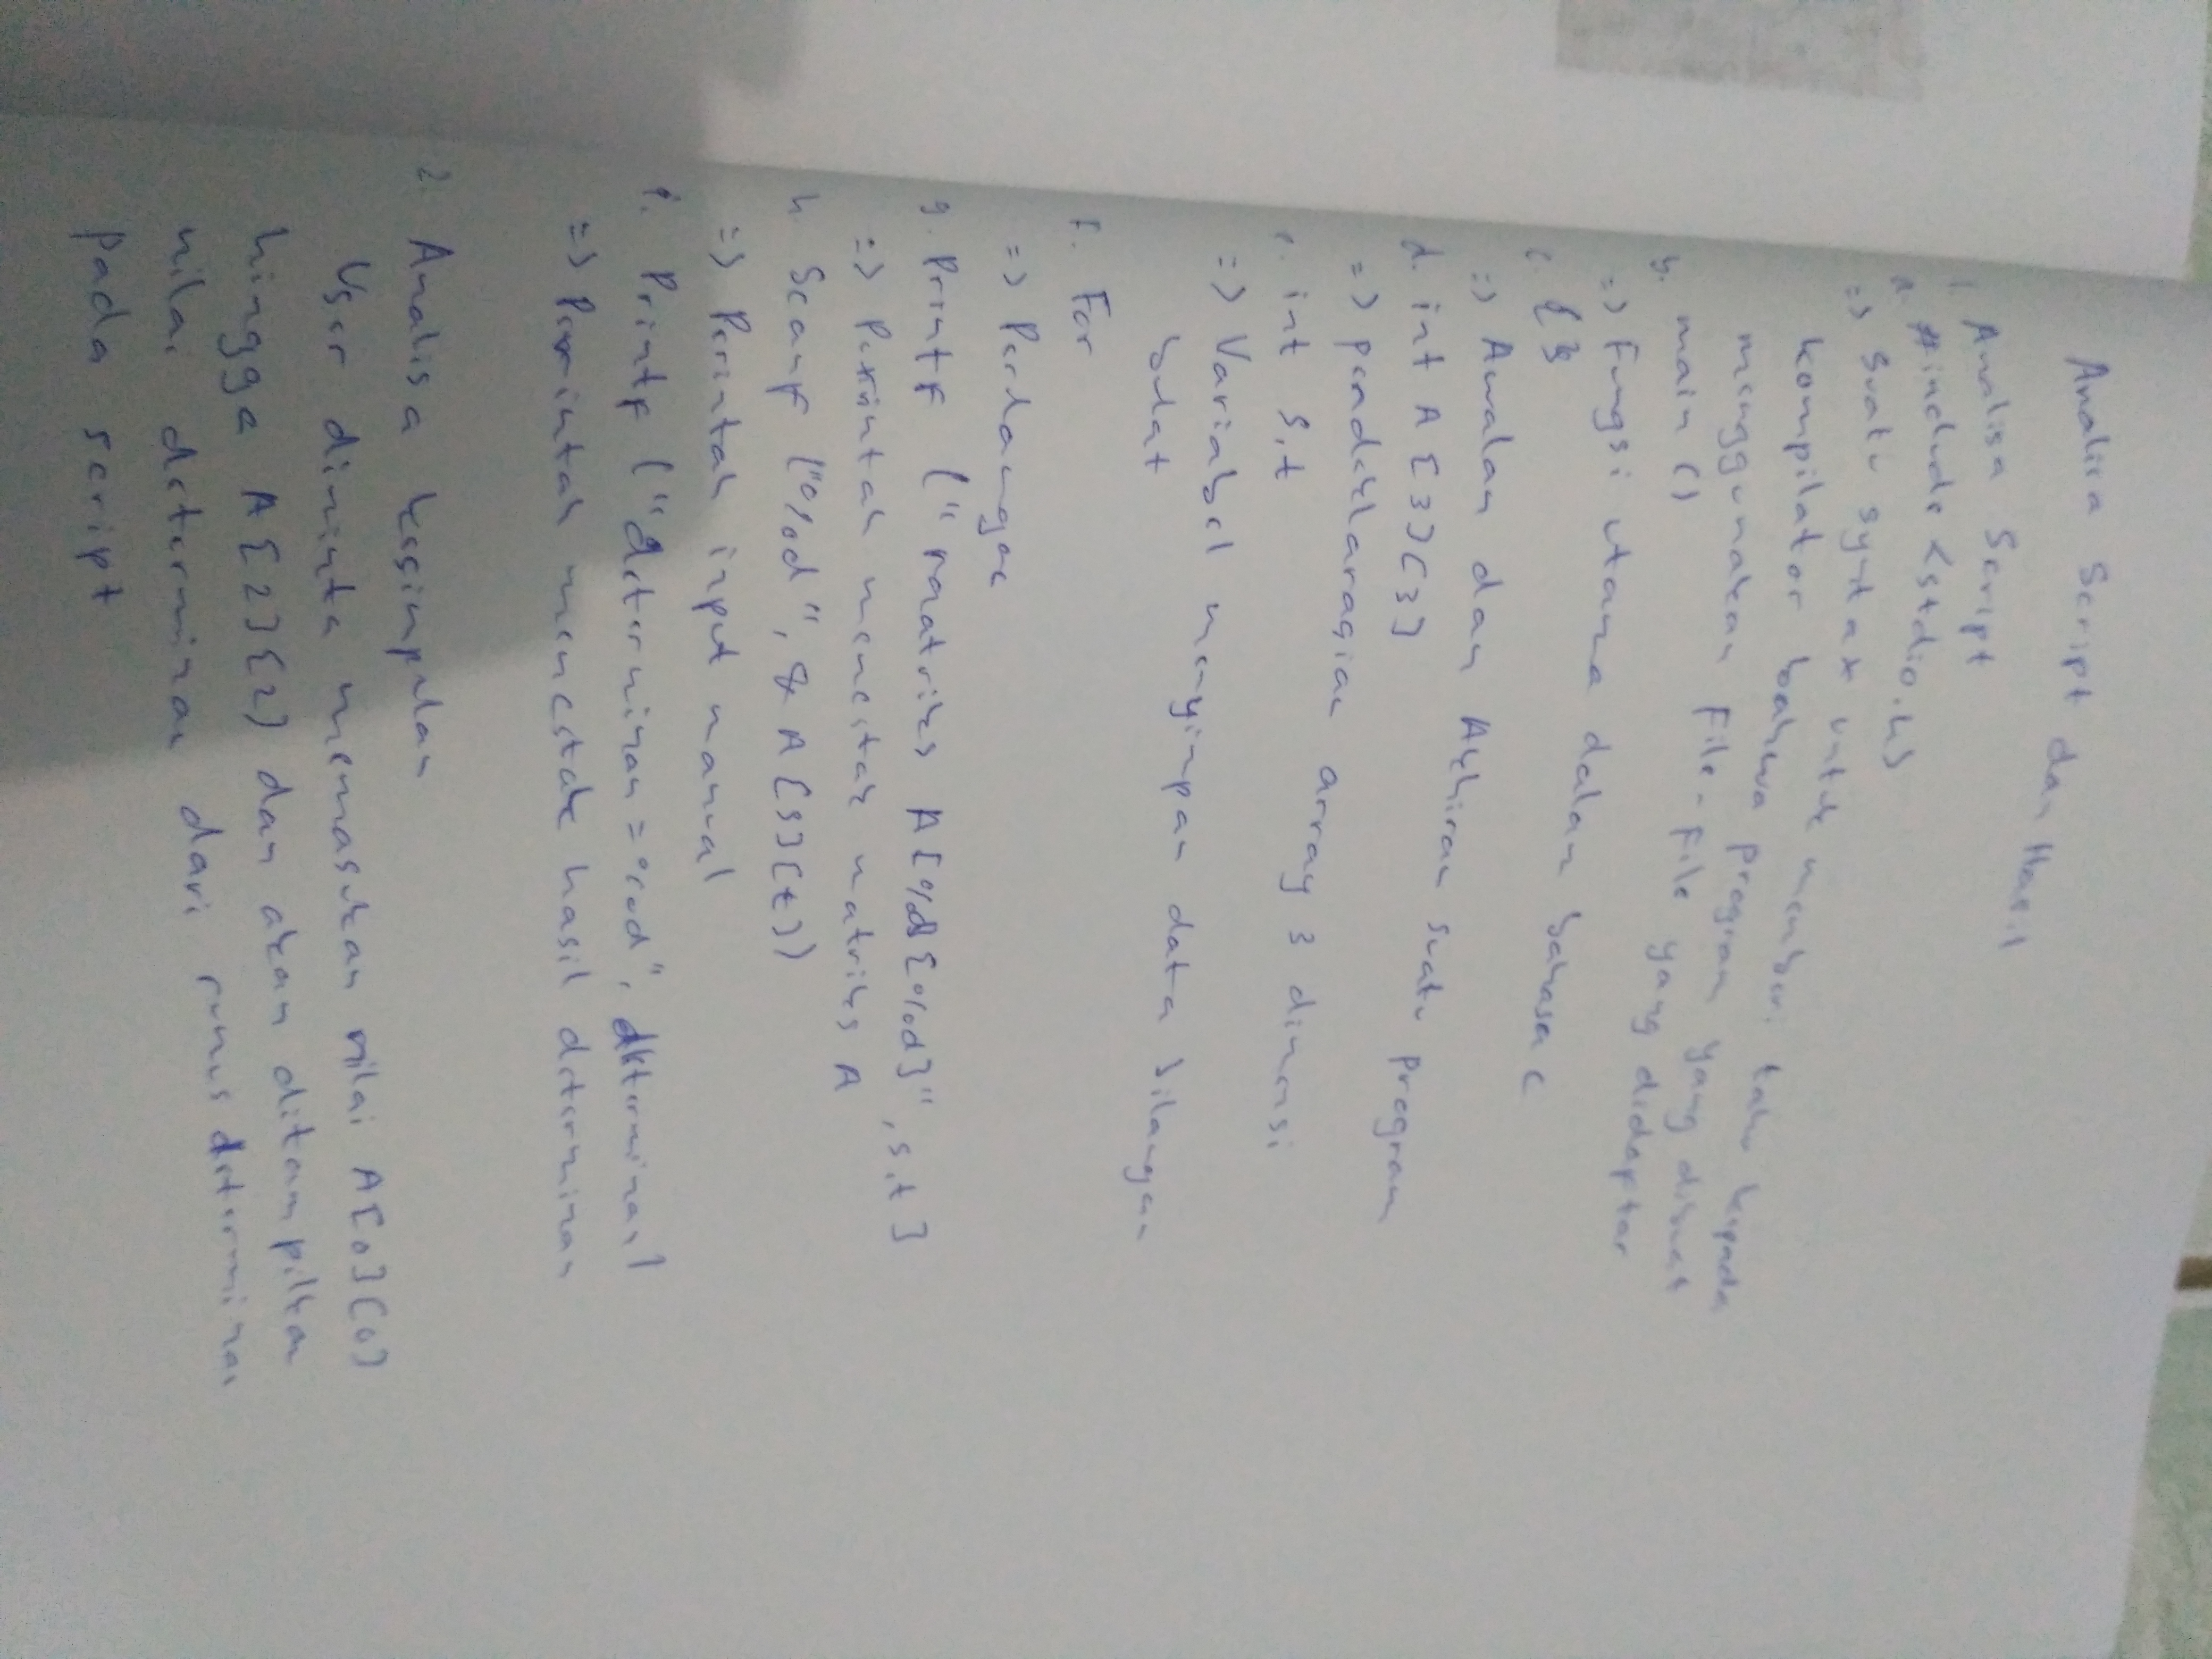 Analisa Script dan Hasil
1. Analisa Script
a. #include <stdio.h>
=> Suatu syntax untuk memberi tahu kepada
kompilator bahwa program yang dibuat
menggunakan file-file yang didaptar
b. main ()
=> Fungsi utama dalam bahasa C
c. { }
=> Awalan dan Akhiran suatu program
d. int A [3][3]
=> pendeklarasian array 3 dimensi
e. int s,t
=> Variabel menyimpan data bilangan
bulat
f. For
=> Perulangan
g. Printf ("matriks A[%d][%d]", s,t]
=> Perintah mencetak matriks A
h. Scanf ("%d", & A[s][t])
=> Perintah input manual
i. Printf ("determinan = %d", determinan)
=> Perintah mencetak hasil determinan
2. Analisa kesimpulan
User diminta memasukan nilai A[0][0]
hingga A[2][2] dan akan ditampilkan
nilai determinan dari rumus determinan
pada script